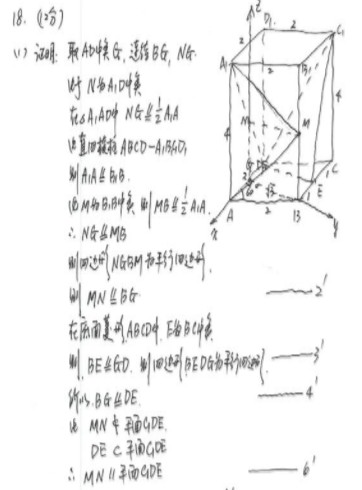 18. (12分)
(1) 证明: 取AD中点G, 连结BG, NG.
由于N为A₁D中点
在△A₁AD中 NG ⫽ 1/2 A₁A
由直四棱柱ABCD-A₁B₁C₁D₁
则A₁A ⫽ B₁B.
由M为B₁B中点 则 MB ⫽ 1/2 A₁A.
∴ NG ⫽ MB
则四边形NGBM为平行四边形.
则 MN ⫽ BG —— 2'
在底面菱形ABCD中, E为BC中点
则 BE ⫽ GD. 则四边形BEDG为平行四边形. —— 3'
所以 BG ⫽ DE. —— 4'
由 MN ⊄ 平面C₁DE
DE ⊂ 平面C₁DE
∴ MN // 平面C₁DE —— 6'
z
D₁
2
C₁
2
A₁
2
B₁
4
4
4
N
M
G
D
C
1
E
60°
√3
1
A
2
B
x
y